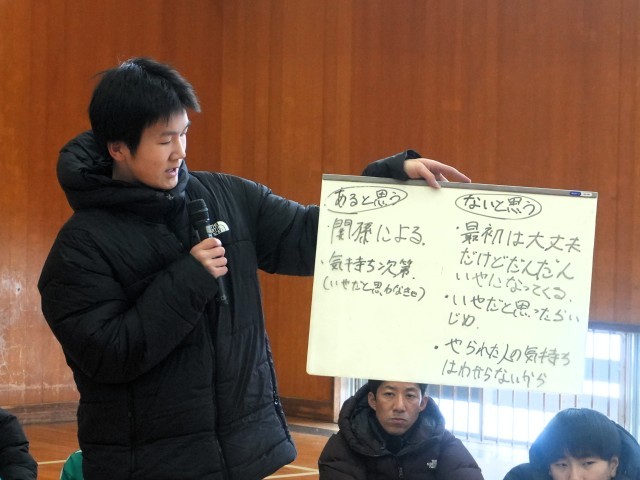 あると思う
・関係による.
・気持ち次第.
(いやだと思わなきゃ)
ないと思う
・最初は大丈夫
だけどだんだん
いやになってくる.
・いやだと思ったらい
じめ.
・やられた人の気持ち
はわからないから